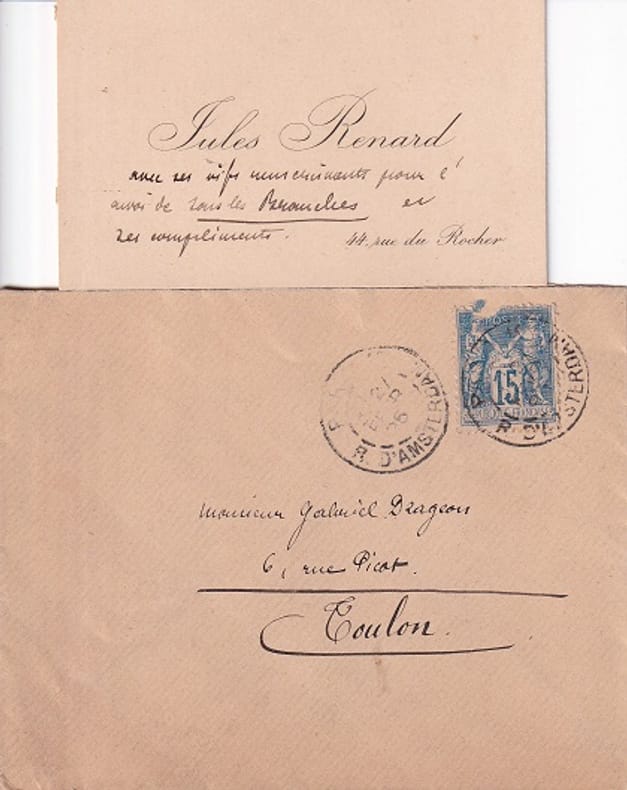 Jules Renard
avec ses vifs remerciements pour l'
envoi de Tous les Branches et
ses compliments.
44, rue du Rocher
15
R. D'AMSTERDAM
R. D'AMSTERDAM
Monsieur Gabriel Drageon
6, rue Picot.
Toulon.